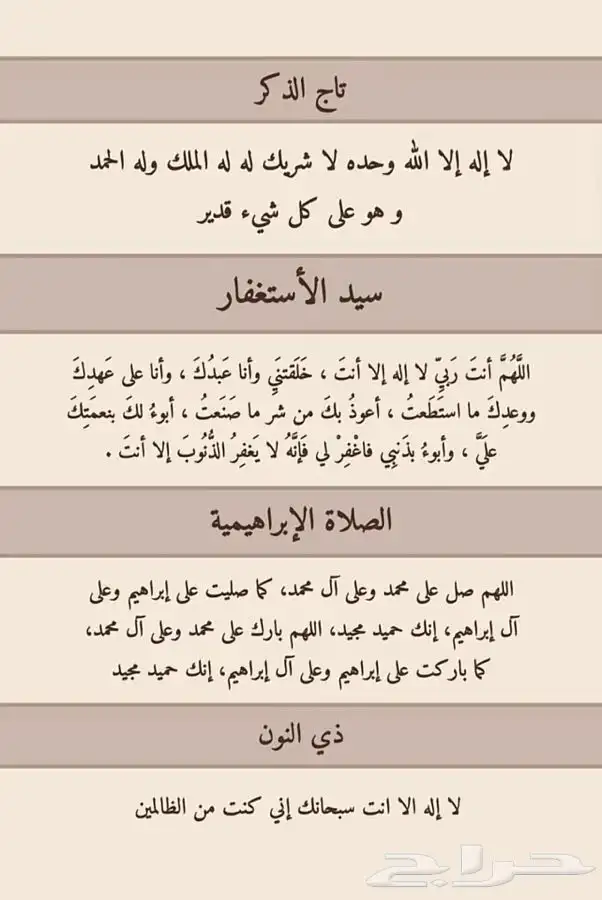 تاج الذكر
لا إله إلا الله وحده لا شريك له له الملك وله الحمد
و هو على كل شيء قدير
سيد الأستغفار
اللَّهُمَّ أنتَ رَبِيِّ لا إله إلا أنتَ ، خَلَقتنَيِ وأنا عَبدُكَ ، وأنا على عَهدِكَ
ووعدِكَ ما استَطَعتُ ، أعوذُ بكَ من شر ما صَنَعتُ ، أبوءُ لكَ بنعمَتِكَ
علَيَّ ، وأبوءُ بذَنبِي فاغْفِرْ لي فَإنَّهُ لا يَغفِرُ الذُّنُوبَ إلا أنتَ .
الصلاة الإبراهيمية
اللهم صل على محمد وعلى آل محمد، كما صليت على إبراهيم وعلى
آل إبراهيم، إنك حميد مجيد، اللهم بارك على محمد وعلى آل محمد،
كما باركت على إبراهيم وعلى آل إبراهيم، إنك حميد مجيد
ذي النون
لا إله الا انت سبحانك إني كنت من الظالمين
حراج